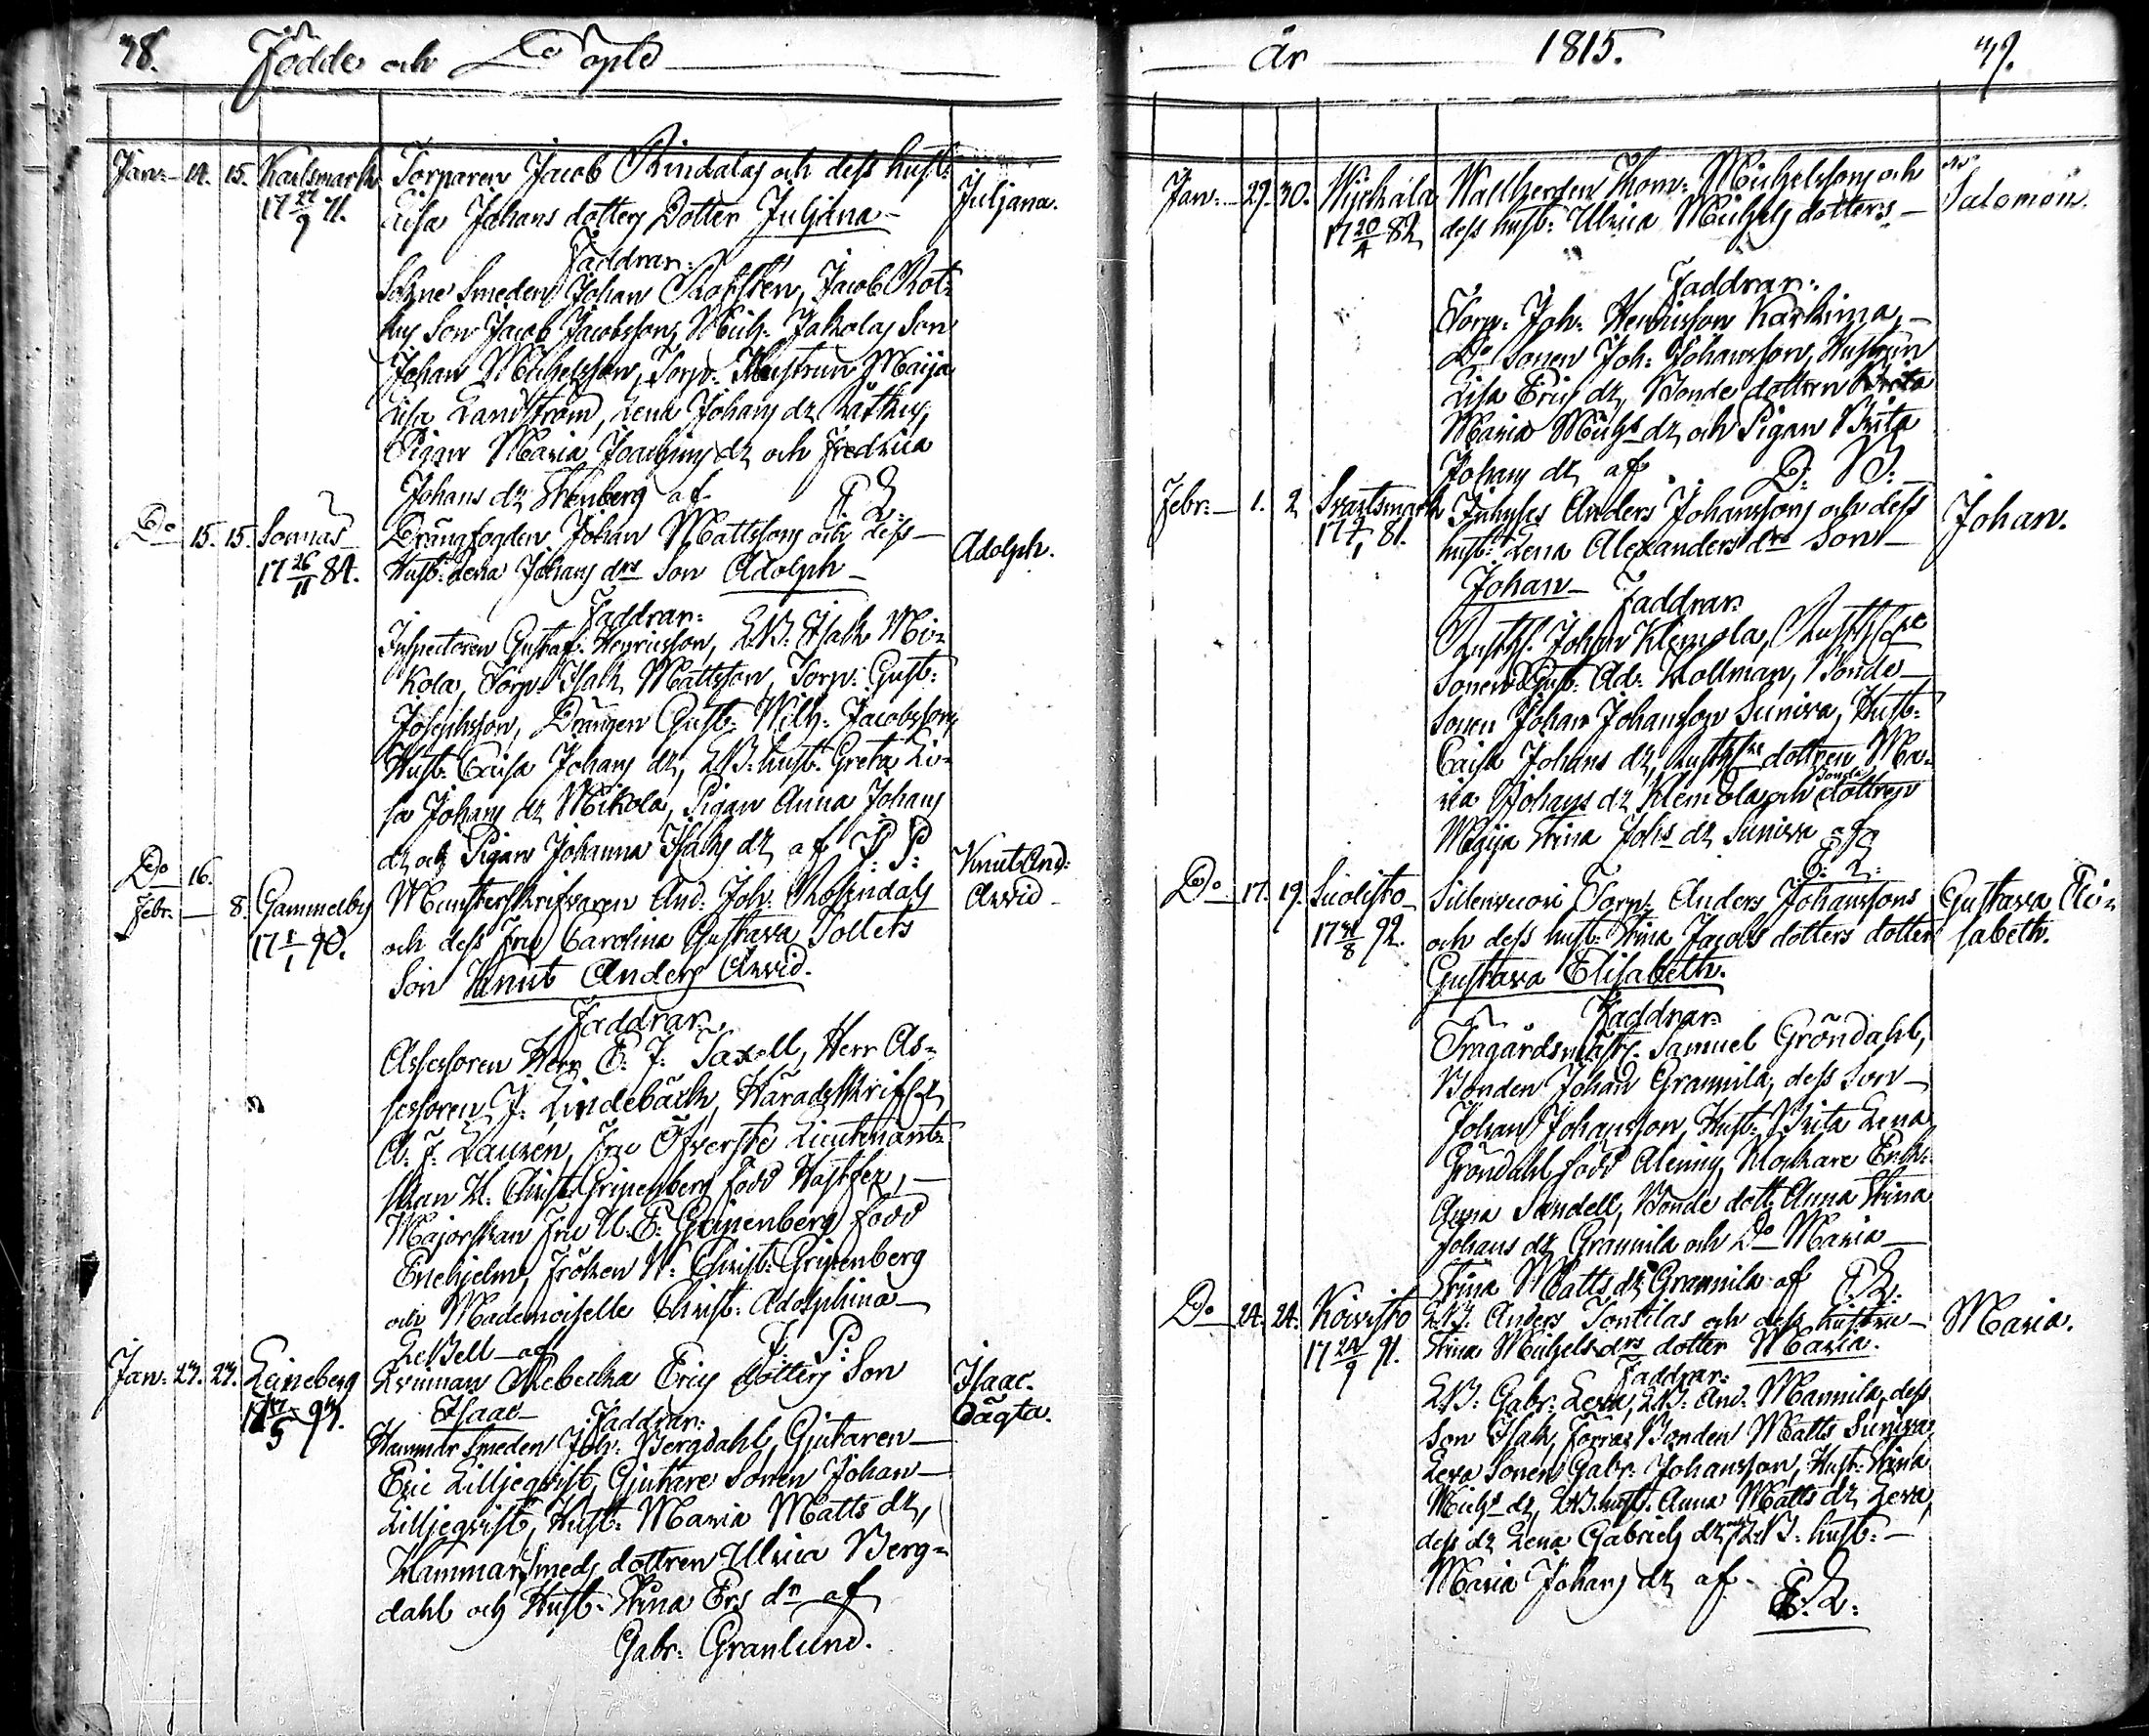 38. Födde och Döpte
Jan: 14. 15. Karlsmark Torparen Jacob Rindalas och dess hust: Juljana.
17 22/9 71. Caisa Johans dotters Dotter Juljana
Faddrar:
Sokne Smeden Johan Rofsten, Jacob Rot-
kus Son Jacob Jacobsson, Mich: Jakolas Son
Johan Michelsson, Torp: Hustrun Maija
Lisa Landström, Lena Johans dr
Pigan Maria Joachims dr och Fredrica
Johans dr Stenberg af E. L.
Do 15. 15. Sonnäs Drängfogden Johan Mattssons och dess Adolph.
17 26/11 84. Hust: Lena Johans drs Son Adolph
Faddrar:
Inspectoren Gustaf Henricsson, LB: Isak Mi-
kola, Torp: Isak Mattsson, Torp: Gust:
Josephsson, Drängen Gust: Wilh: Jacobsson,
Hust: Caisa Johans dr, LB: hust: Greta Li-
sa Johans dr Mikola, Pigan Anna Johans
dr och Pigan Johanna Isaks dr af J: P:
Do 16. Knut And:
Febr: 8. Gammelby Munsterskrifvaren And. Joh: Rosendals Arvid
17 1/1 90. och dess Fru Carolina Gustava Tollets
Son Knut Anders Arvid.
Faddrar:
Assessoren Herr E. J: Taxell, Herr As-
sessoren J. Lindebäck, Häradsskrifvr
A. F. Lauren, Fru Öfverste Lieutnant-
skan H. Christ: Gripenberg född Hastfer,
Majorskan Fru U. E: Gripenberg född
Enehjelm, Fröken W: Christ: Gripenberg
och Mademoiselle Christ: Adolphina
LeBell af J: P:
Jan: 23. 23. Leineberg Qvinnans Rebecka Erics dotters Son Isaac.
Isaac Faddrar: Oägta.
Hammar Smeden Joh: Bergdahl, Gjutaren
Eric Lilljeqvist, Gjutare Sonen Johan
Lilljeqvist, Hust: Maria Matts dr,
Hammarsmeds dottren Ulrica Berg-
dahl och Hust: Stina Ers dr af
Gabr: Granlund.
År 1815. 39.
Jan: 29. 30. Wijckäla Wallherden Thom: Michelssons och Salomon.
17 20/4 82 dess hust: Ulrica Michels dotters
Faddrar:
Torp: Joh: Henricsson Karhima,
Do Sonen Joh: Johansson, Hustrun
Lisa Erics dr, Bonde dottren
Maria Michs dr och Pigan Brita
Johans dr af D: B:
Febr: 1. 2 Svartsmark Inhyses Anders Johanssons och dess Johan.
81. hust: Lena Alexanders drs Son
Johan Faddrar:
Rusth: Johan Klemola, Rusth:
Sonen Gust: Ad: Kollman, Bonde
Sonen Johan Johansson Sunixa, Hust:
Caisa Johans dr, dottren Ma-
ria Johans dr Klemola och Bonde dottren
Maija Stina Johs dr Sunixa af
E. L:
Do 17. 19. Suolisto Sillenvuori Torp: Anders Johanssons Gustava Eli-
17 31/8 92. och dess hust: Stina Jacobs dotters dotter sabeth.
Gustava Elisabeth.
Faddrar:
Trägårdsmäst: Samuel Gröndahl,
Bonden Johan Grannila, dess Son
Johan Johansson, Hust: Brita Lena
Gröndahl född Alenius, Klockare Enk:
Anna Sandell, Bonde dott: Anna Stina
Johans dr Grannila och Do Maria
Stina Matts dr Grannila af E. L:
Do 24. 24. Koivisto LB: Anders Tontilas och dess hustru Maria.
17 24/9 91. Stina Michels drs dotter Maria.
Faddrar:
LB: Gabr: Leva, LB: And: Mannila, dess
Son Isak, Förra Bonden Matts Sunixa,
Leva Sonen Gabr: Johansson, Hust: Stina
Michs dr, LB: hust: Anna Matts dr Leva,
dess dr Lena Gabriels dr och LB: hust:
Maria Johans dr af
E. L: